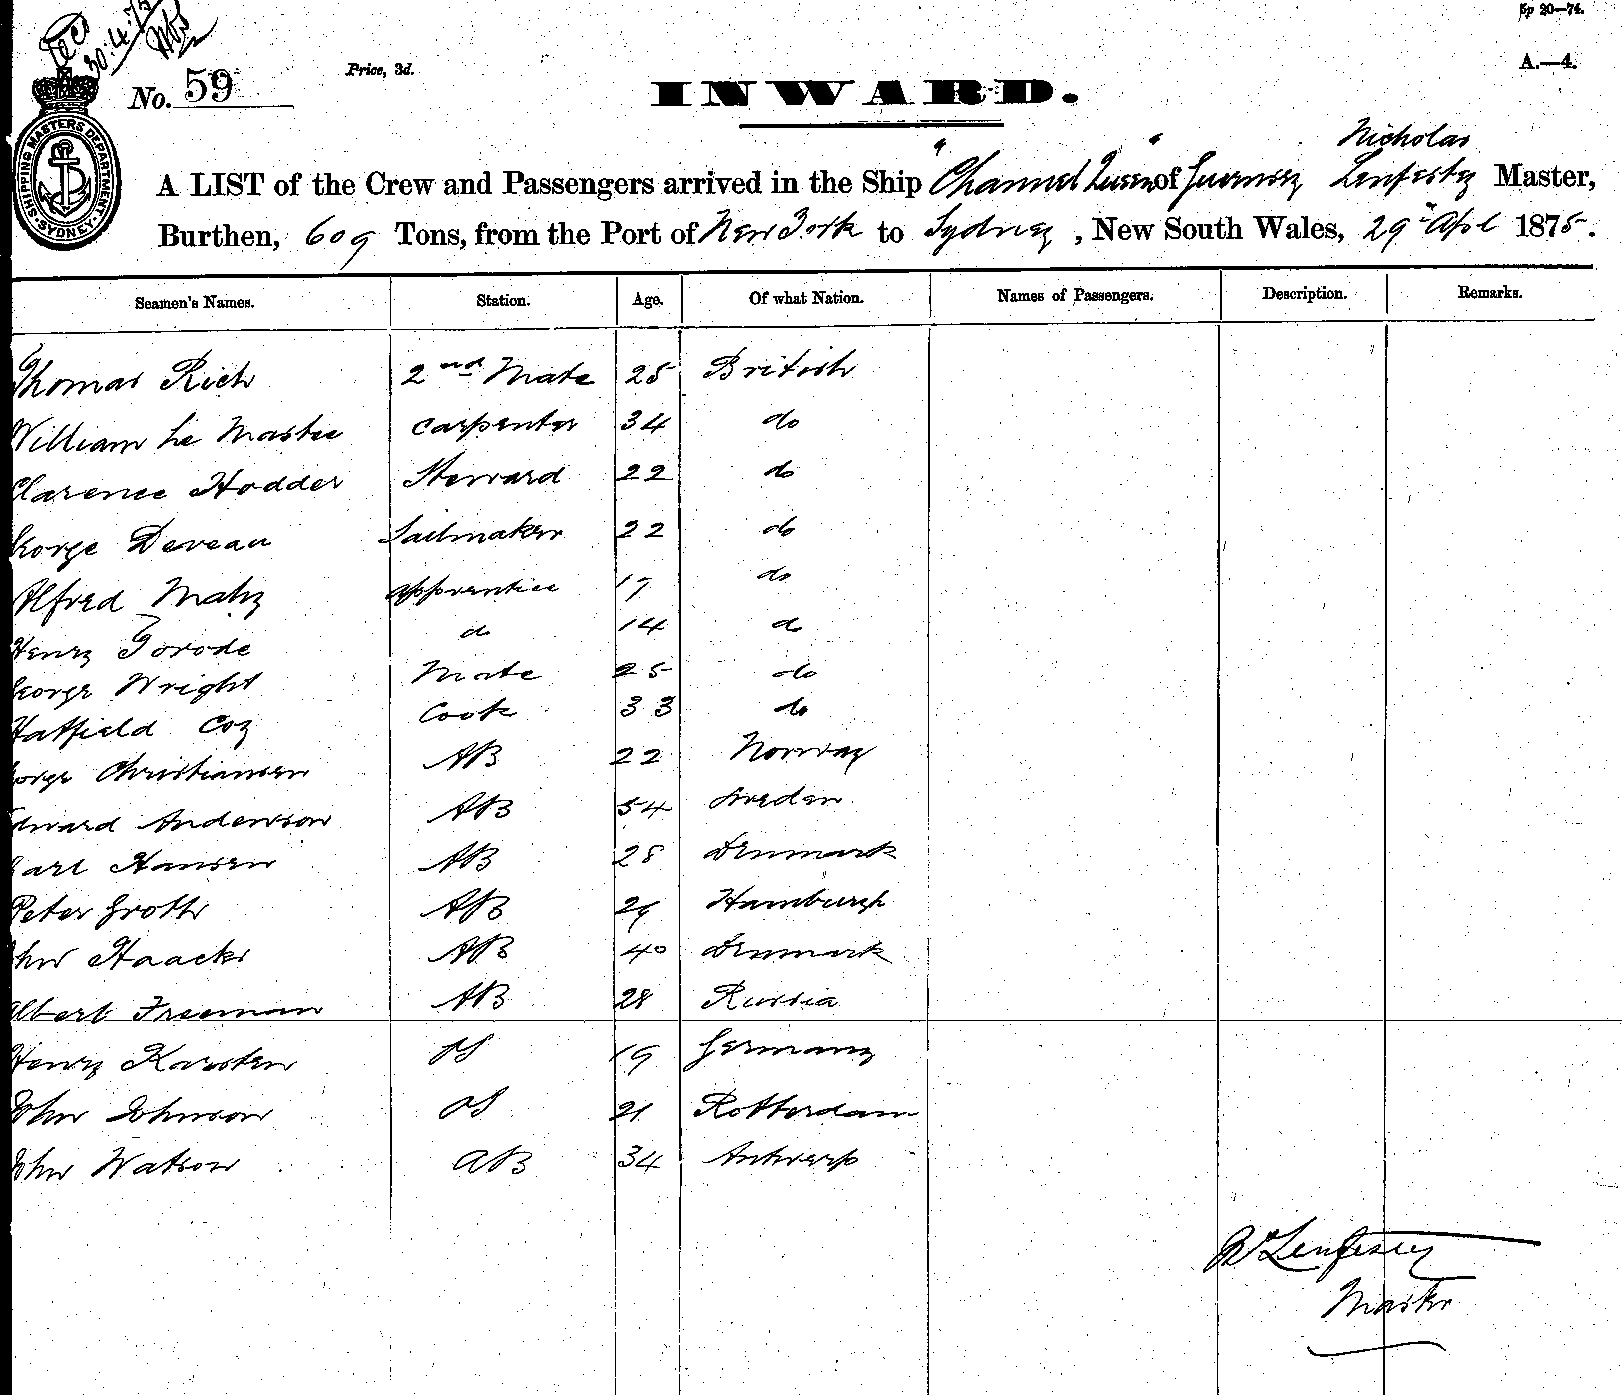 Recd
30.4.75
Sp 20—74.
No. 59
Price, 3d.
INWARD.
A.—4.
SHIPPING MASTERS DEPARTMENT. SYDNEY.
Nicholas
A LIST of the Crew and Passengers arrived in the Ship "Channel Queen" of Guernsey Lenfestey Master,
Burthen, 609 Tons, from the Port of New York to Sydney, New South Wales, 29th Apl 1875.
Seamen's Names. Station. Age. Of what Nation. Names of Passengers. Description. Remarks.
Thomas Rich 2nd Mate 25 British
William Le Mastee carpenter 34 do
Clarence Hodder Steward 22 do
George Deveau Sailmaker 22 do
Alfred Mahy apprentice 17 do
Henry Torode do 14 do
George Wright Mate 25 do
Hatfield Coy Cook 33 do
George Christiansen AB 22 Norway
Edward Anderson AB 54 Sweden
Carl Hansen AB 28 Denmark
Peter Groth AB 29 Hamburgh
John Haacks AB 40 Denmark
Albert Freeman AB 28 Russia
Henry Karsten OS 19 Germany
John Johnson OS 21 Rotterdam
John Watson AB 34 Antwerp
N Lenfestey
Master